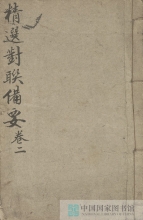 精選對聯備要卷二
中国国家图书馆